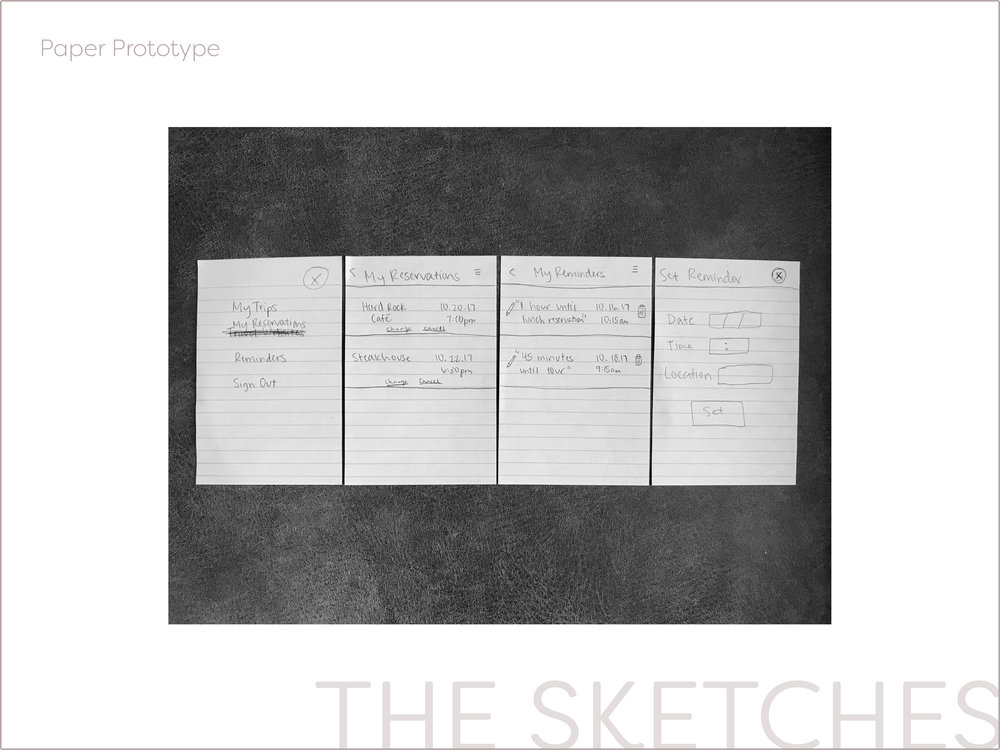 Paper Prototype
X
My Trips
My Reservations
Travel Websites
Reminders
Sign Out
< My Reservations ≡
Hard Rock 10.20.17
Café 7:00pm
change cancel
Steakhouse 10.22.17
6:30pm
change cancel
< My Reminders ≡
"1 hour until 10.16.17
lunch reservation" 10:15am
"45 minutes 10.18.17
until tour" 9:15am
Set Reminder X
Date / /
Time :
Location
Set
THE SKETCHES